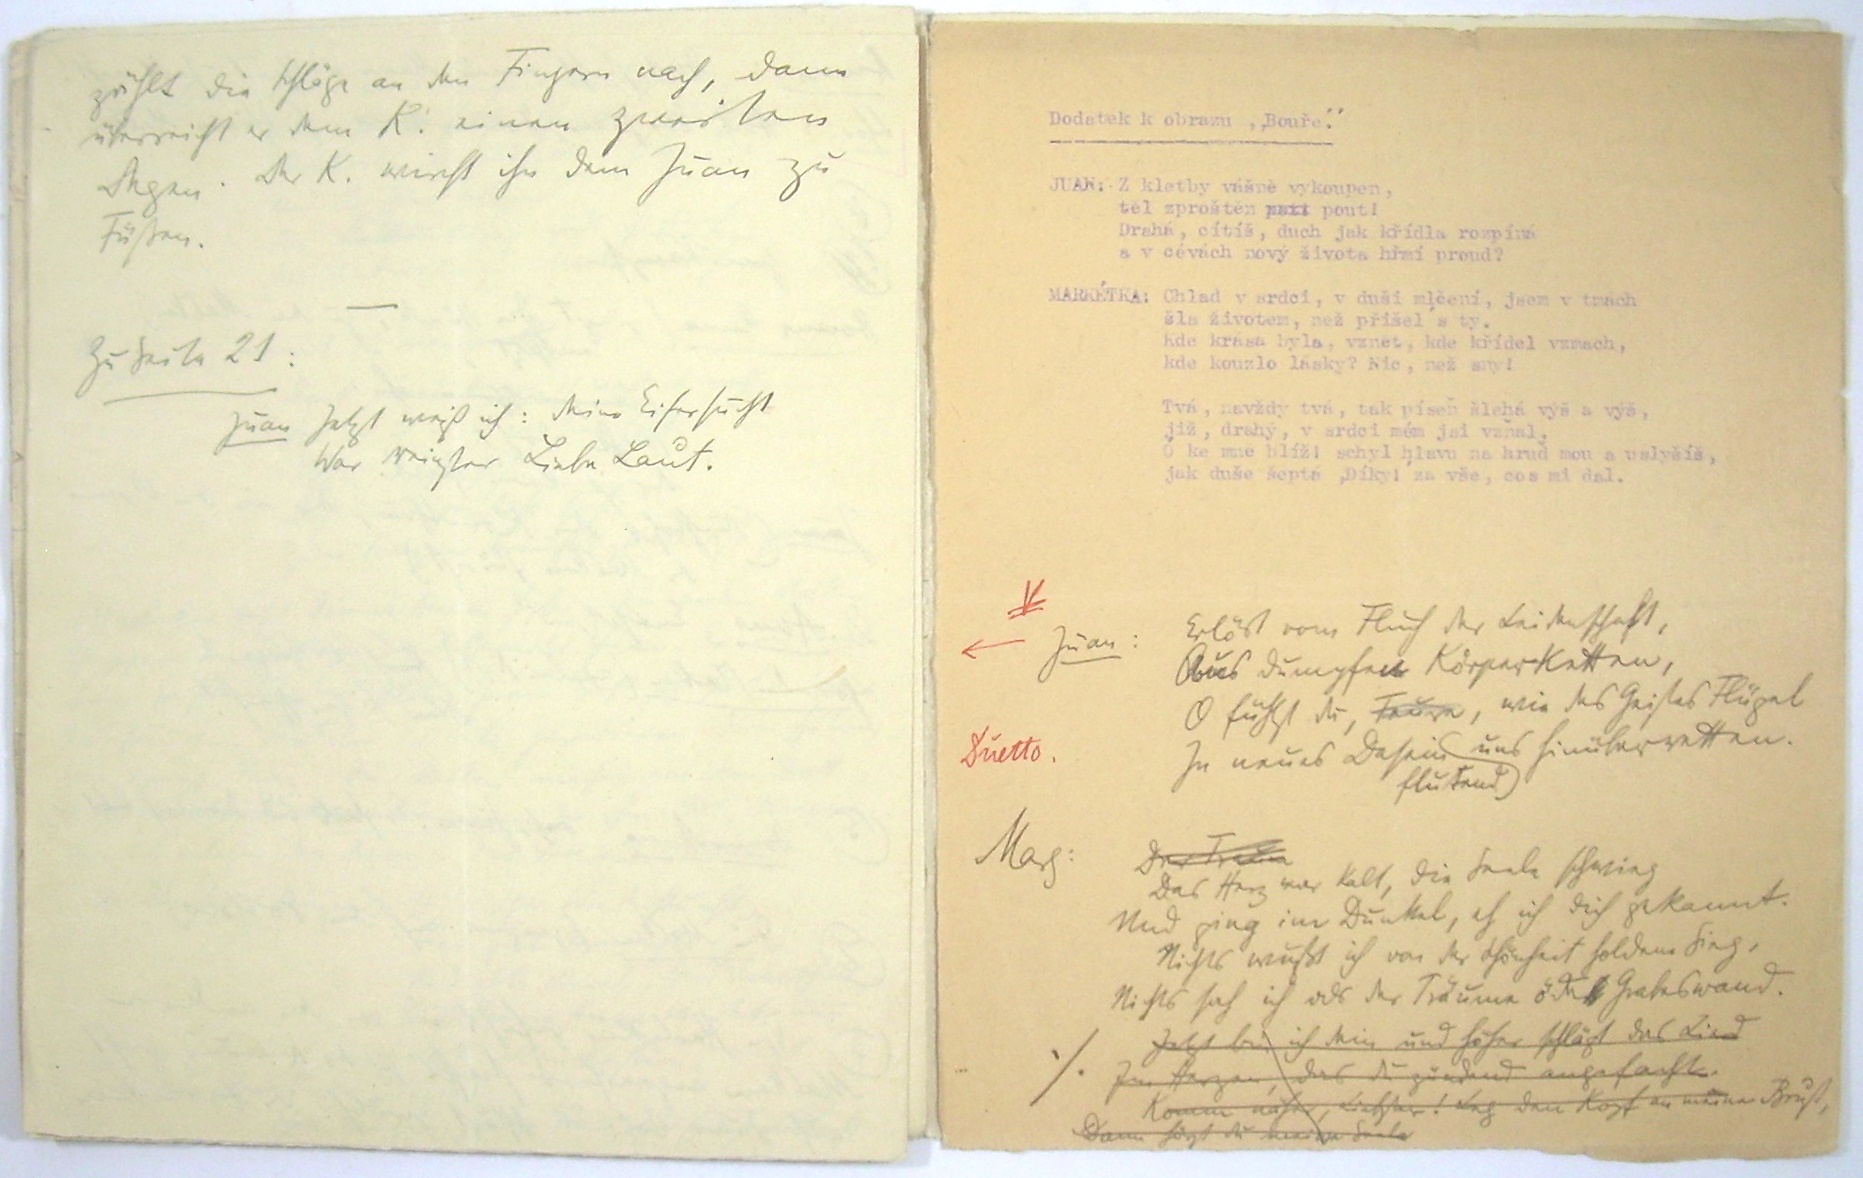 zählt die Schläge an den Fingern nach, dann
überreicht er dem K. einen zweiten
Degen. Der K. wirft ihn dem Juan zu
Füßen.
Zu Seite 21:
Juan Jetzt weiß ich: Meine Eifersucht
War Liebe Laut.
Dodatek k obrazu „Bouře."
JUAN: Z kletby vášně vykoupen,
těl zproštěn pout!
Drahá, cítíš, duch jak křídla rozpíná
a v cévách nový života hřmí proud?
MARKÉTKA: Chlad v srdci, v duši mlčení, jsem v tmách
šla životem, než přišel's ty.
Kde krása byla, vznět, kde křídel vzmach,
kde kouzlo lásky? Nic, než sny!
Tvá, navždy tvá, tak píseň šlehá výš a výš,
již, drahý, v srdci mém jsi vzňal.
Ó ke mne blíž! schyl hlavu na hruď mou a uslyšíš,
jak duše šeptá ‚Díky!' za vše, cos mi dal.
Juan: Erlöst vom Fluch der Leidenschaft,
Aus dumpfen Körperketten,
O fühlst du, Teure, wie des Geistes Flügel
Duetto.
In neues Dasein uns hinüberretten.
flutend
Marg: Der Traum
Das Herz war kalt, die Seele schwieg
Und ging im Dunkel, eh ich dich gekannt.
Nichts wußt ich von der Schönheit holdem Sieg,
Nichts sah ich als der Träume öde Grabeswand.
Jetzt bin ich dein und höher schlägt das Lied
Im Herzen, das du zündend angefacht.
Komm näher, Liebster! Leg den Kopf an meine Brust,
Dann hörst du meine Seele